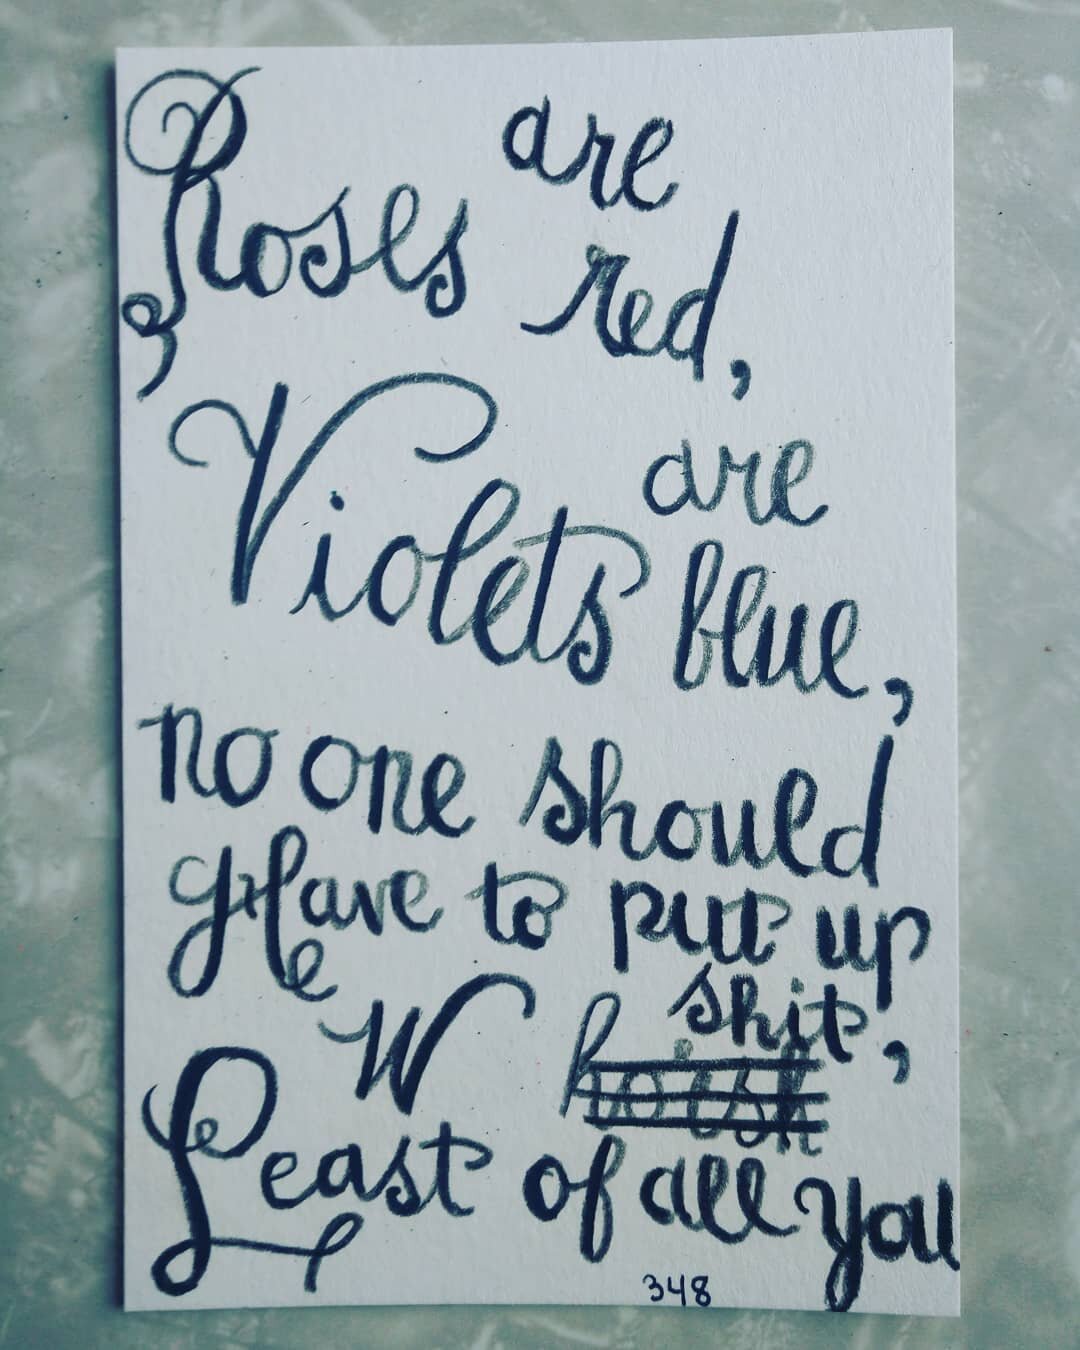 Roses are
red,
Violets are
blue,
no one should
Have to put up
W shit,
Least of all you
348